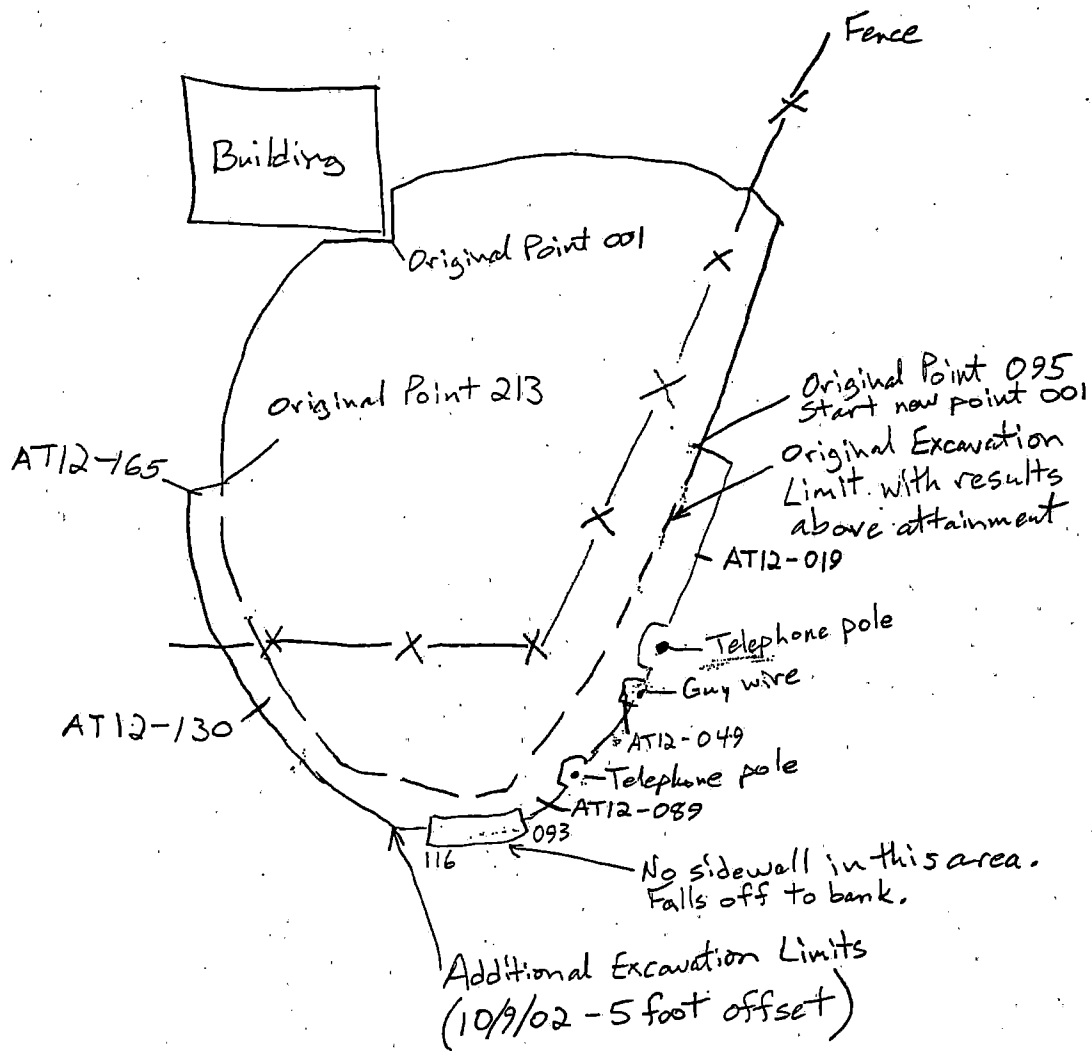 Fence
Building
Original Point 001
Original Point 213
Original Point 095
Start new point 001
AT12-165
Original Excavation
Limit with results
above attainment
AT12-019
Telephone pole
Guy wire
AT12-130
AT12-049
Telephone pole
AT12-089
093
116
No sidewall in this area.
Falls off to bank.
Additional Excavation Limits
(10/9/02 - 5 foot offset)